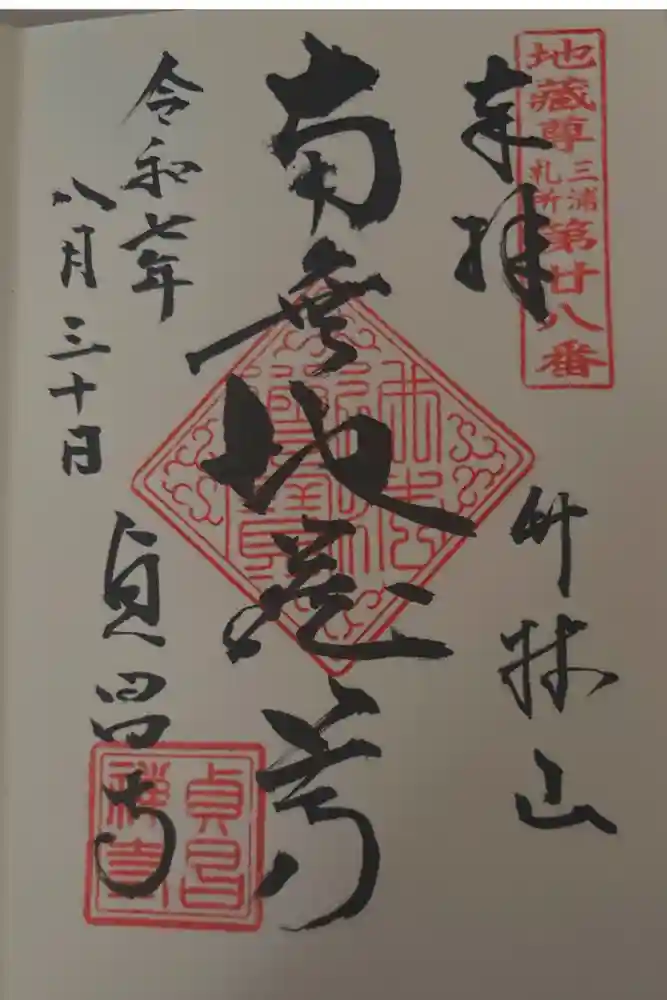 地藏尊
三浦
札所
第廿八番
奉拝
竹林山
南無地蔵尊
令和七年
八月三十日
貞昌寺
貞昌
禅寺